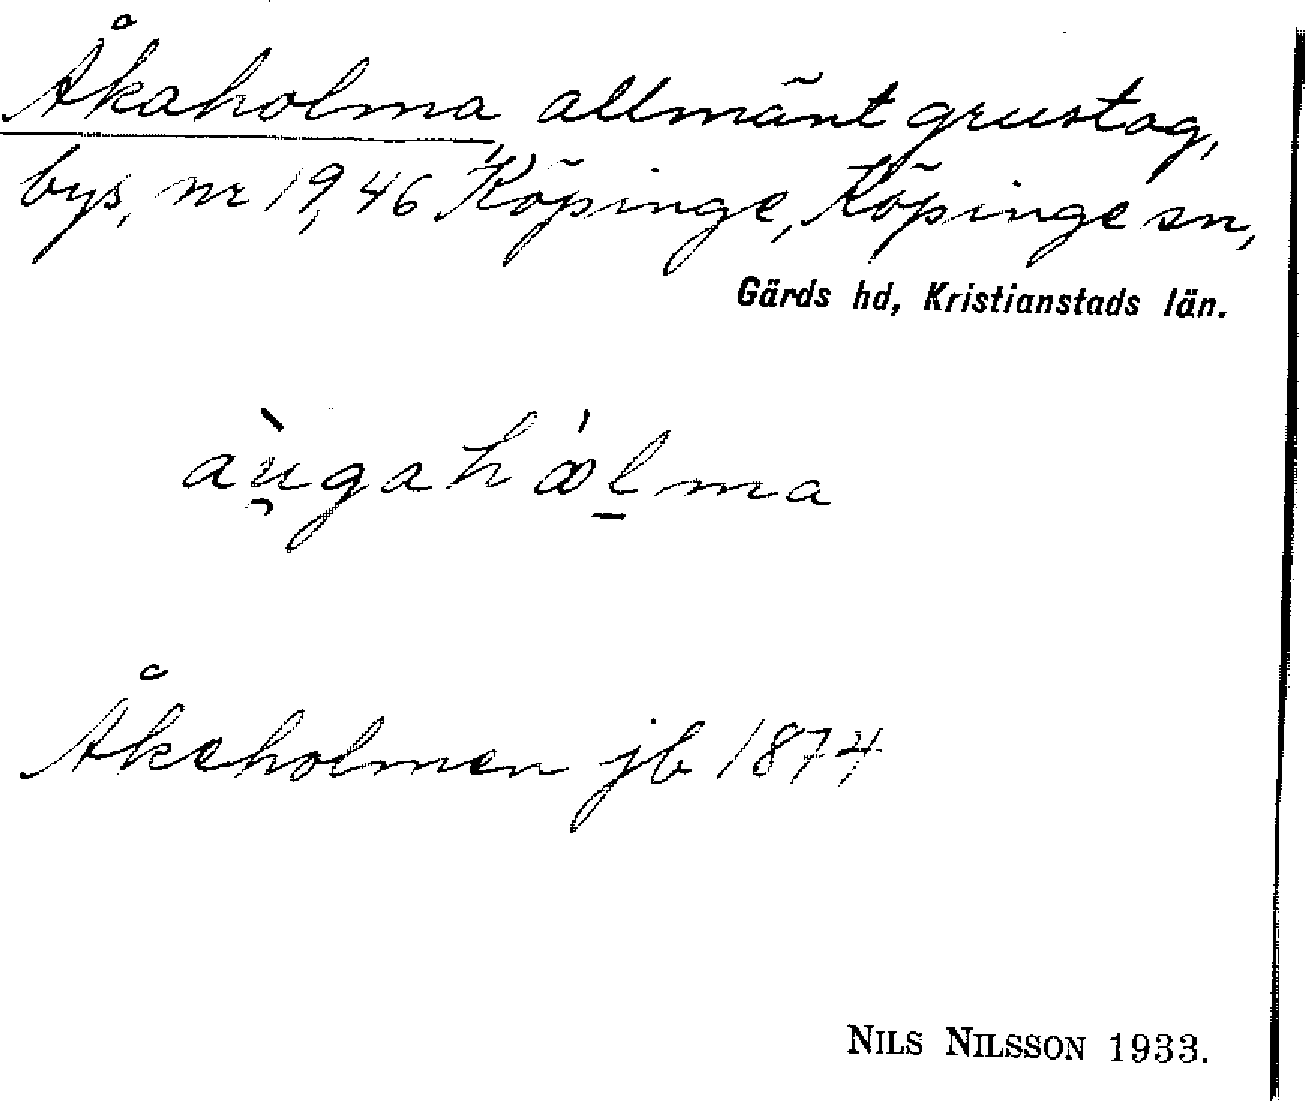 Åkaholma, allmänt grustag,
bys, nr 19, 46 Köpinge, Köpinge sn,
Gärds hd, Kristianstads län.
àu̯gahω̍l̠ma
Åkeholmen jb 1874
NILS NILSSON 1933.